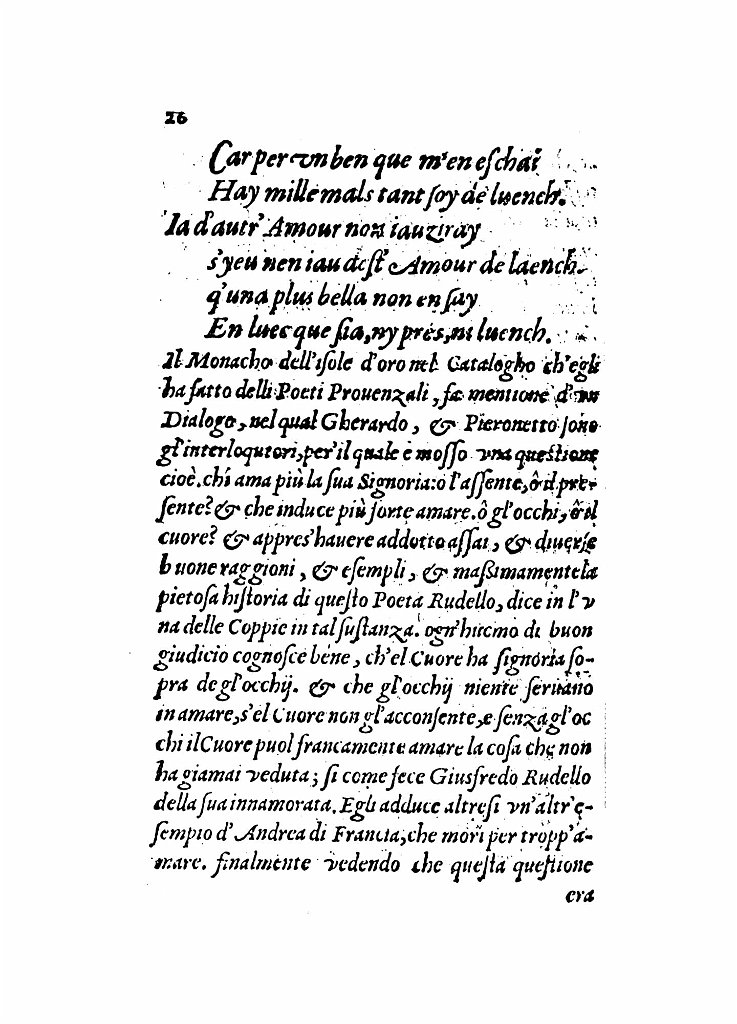 26
Car per vn ben que m'en eschai
Hay mille mals tant soy de luench.
Ia d'autr' Amour non iauziray
s'yeu nen iau dest' Amour de laench.
q'una plus bella non en say
En luec que sia, ny pres, ni luench.
Il Monacho dell'isole d'oro nel Catalogho ch'egli
ha fatto delli Poeti Prouenzali, fa mentione d'un
Dialogo, nel qual Gherardo, & Pieronetto sono
gl'interloqutori, per'il quale è mosso vna questione
cioè. chi ama più la sua Signoria: ò l'assente, ô il pre-
sente? & che induce più forte amare. ô gl'occhi, ô il
cuore? & appres'hauere addotto assai, & diuerse
buone raggioni, & esempli, & maßimamente la
pietosa historia di questo Poeta Rudello, dice in l'v
na delle Coppie in tal sustanza. ogn'huomo di buon
giudicio cognosce bene, ch'el Cuore ha signoria so-
pra de gl'occhij. & che gl'occhij niente seruano
in amare, s'el Cuore non gl'acconsente, e senza gl'oc
chi il Cuore puol francamente amare la cosa che non
ha giamai veduta; si come fece Giusfredo Rudello
della sua innamorata. Egli adduce altresi vn'altr'e-
sempio d'Andrea di Francia, che morì per tropp'a-
mare. finalmente vedendo che questa questione
era